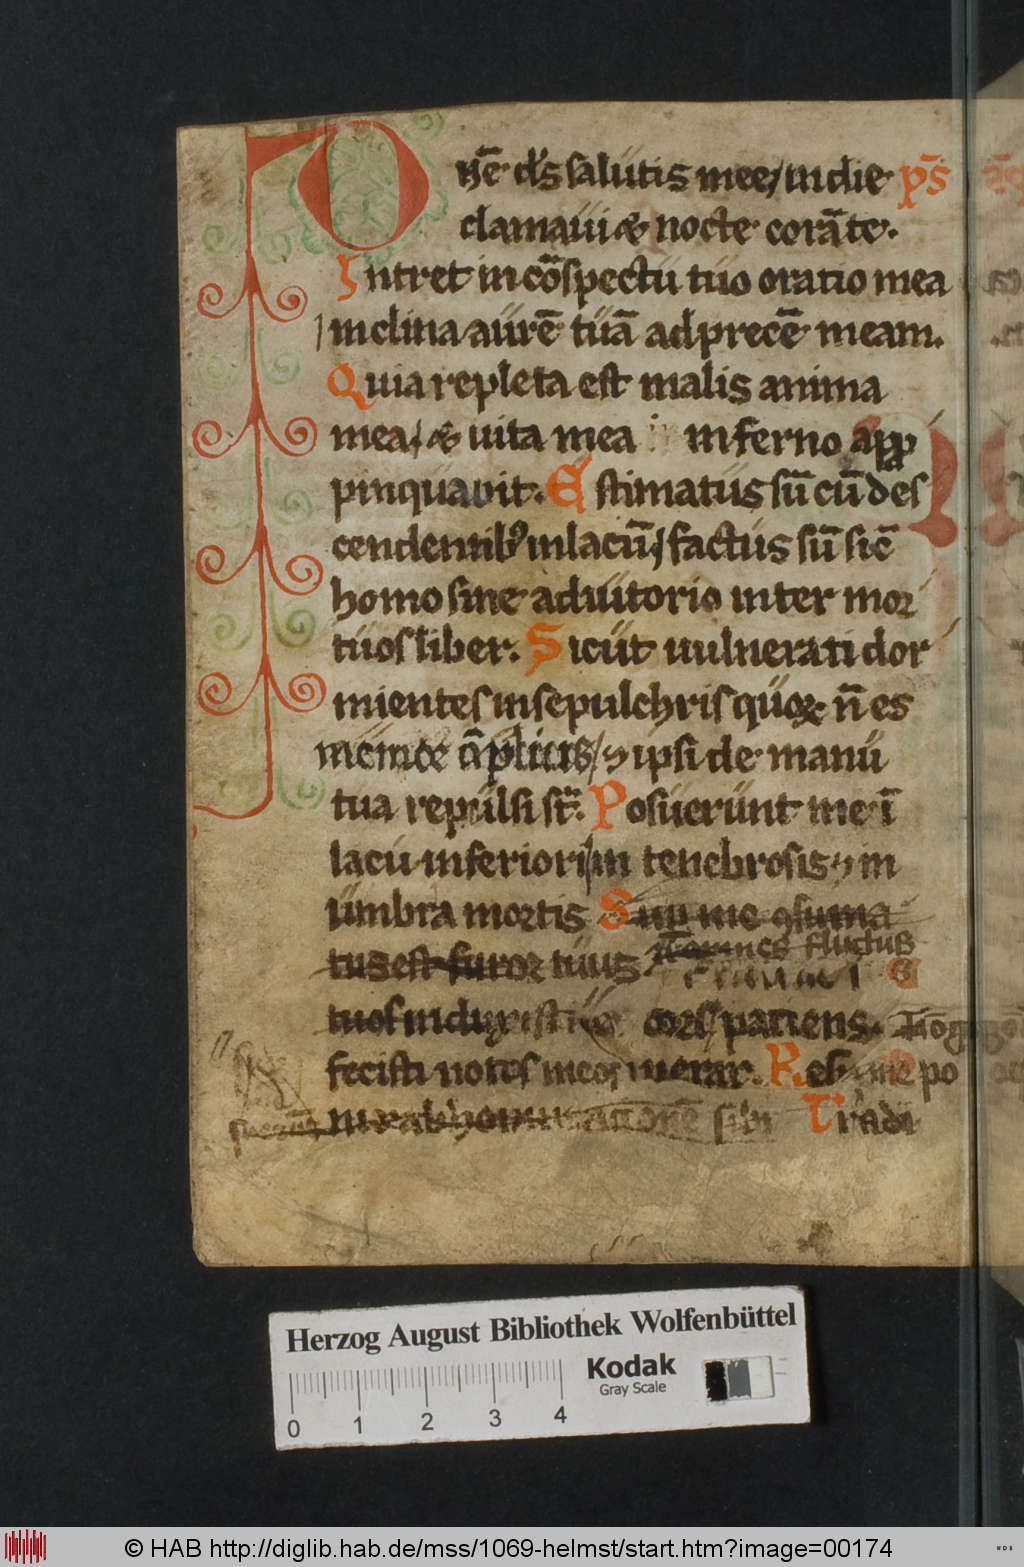 Dnē ds̄ salutis mee / in die ps̄
clamaui & nocte corā te.
Intret in cōspectu tuo oratio mea
inclina aurē tuā ad precē meam.
Quia repleta est malis anima
mea / & uita mea in inferno app
pinquauit. Estimatus sū cū des
cendentib' in lacū / factus sū sic̄
homo sine adiutorio inter mor
tuos liber. Sicut uulnerati dor
mientes in sepulchris quoꝝ n̄ es
memor āplius / ⁊ ipsi de manu
tua repulsi st̄. Posuerunt me ī
lacu inferiori / in tenebrosis ⁊ in
umbra mortis Sup me ꝯfirma
tus est furor tuus omnes fluctus
tuos induxisti
fecisti notos meos
sibi Tradi
Herzog August Bibliothek Wolfenbüttel
Kodak
Gray Scale
0 1 2 3 4
© HAB http://diglib.hab.de/mss/1069-helmst/start.htm?image=00174